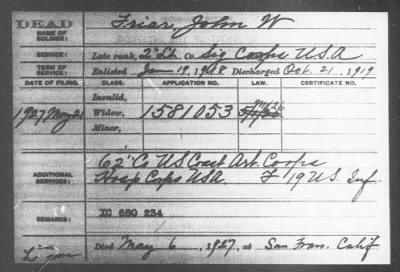 DEAD
NAME OF SOLDIER: Friar, John W
SERVICE: Late rank, 2" Lt Co. Sig Coops U.S.A
TERM OF SERVICE: Enlisted Jan 19, 1918 Discharged Oct. 21, 1919
DATE OF FILING. CLASS. APPLICATION NO. LAW. CERTIFICATE NO.
Invalid,
1927 May 21 Widow, 1581053 My 26
Minor,
ADDITIONAL SERVICES: 62" Co US Coast Art Coops
Hosp Cops USA. F 19 U.S. Inf.
REMARKS: XC 680 234
Died May 6, 1927, at San Fran. Calif